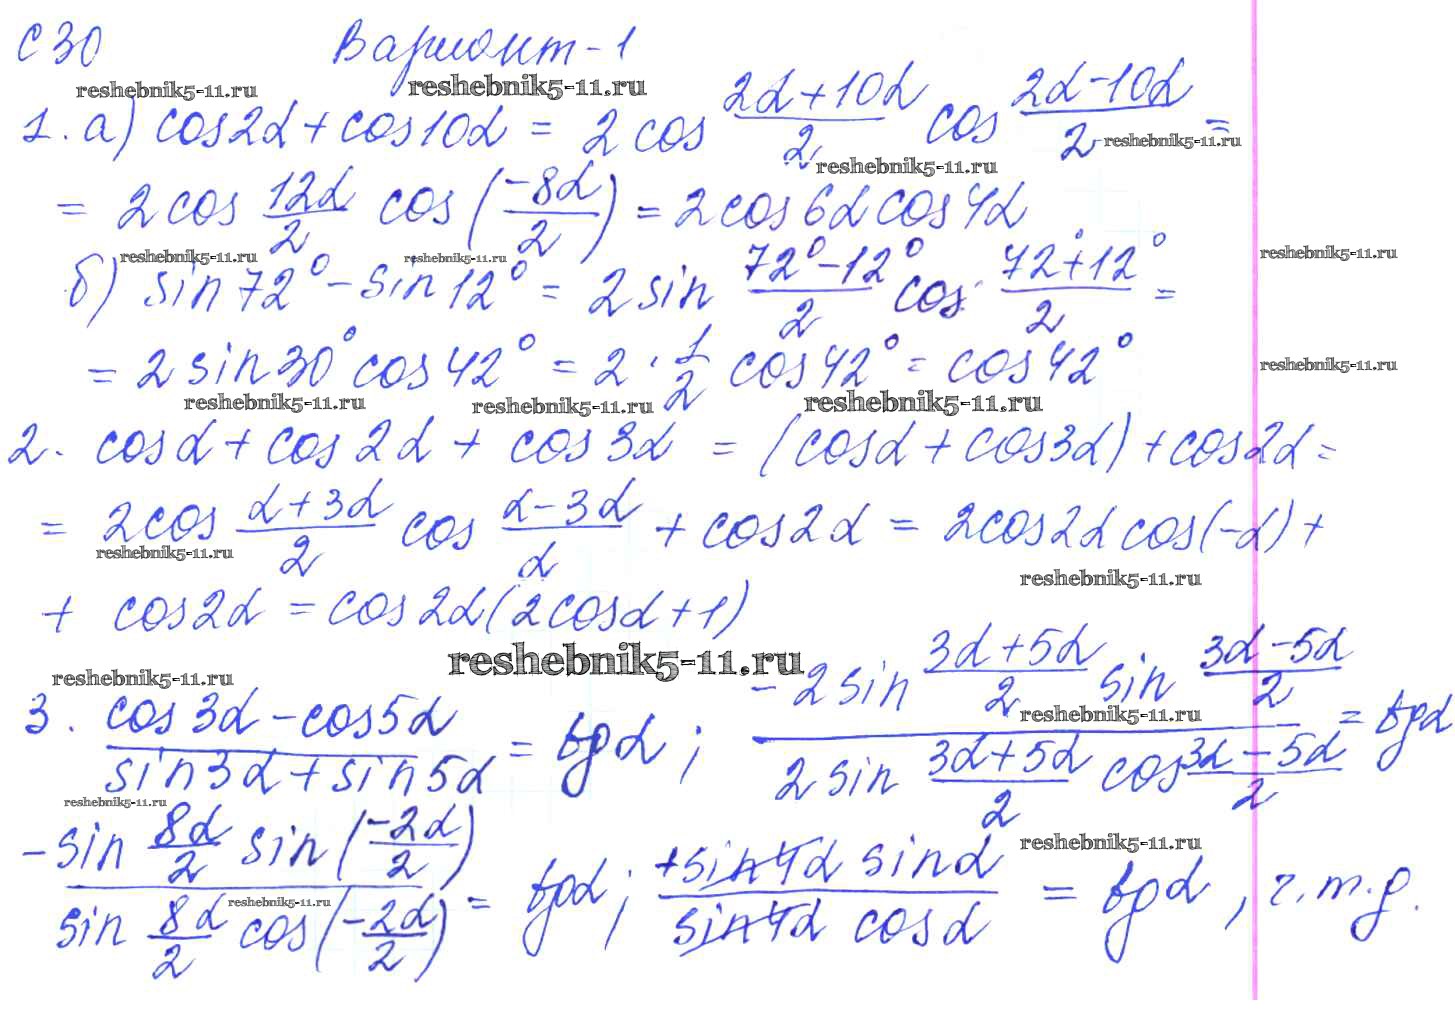 С 30 Вариант-1
reshebnik5-11.ru reshebnik5-11.ru
1. а) cos2α + cos10α = 2 cos (2α+10α)/2 cos (2α-10α)/2 =
reshebnik5-11.ru reshebnik5-11.ru
= 2 cos 12α/2 cos (-8α/2) = 2 cos 6α cos 4α
reshebnik5-11.ru reshebnik5-11.ru reshebnik5-11.ru
б) sin 72° - sin 12° = 2 sin (72°-12°)/2 cos (72°+12°)/2 =
= 2 sin 30° cos 42° = 2 · 1/2 cos 42° = cos 42°
reshebnik5-11.ru
reshebnik5-11.ru reshebnik5-11.ru reshebnik5-11.ru
2. cos α + cos 2α + cos 3α = (cos α + cos 3α) + cos 2α =
= 2 cos (α+3α)/2 cos (α-3α)/α + cos 2α = 2 cos 2α cos(-α) +
reshebnik5-11.ru reshebnik5-11.ru
+ cos 2α = cos 2α (2 cos α + 1)
reshebnik5-11.ru reshebnik5-11.ru
3. (cos 3α - cos 5α)/(sin 3α + sin 5α) = tg α ; (-2 sin (3α+5α)/2 sin (3α-5α)/2)/(2 sin (3α+5α)/2 cos (3α-5α)/2) = tg α
reshebnik5-11.ru
reshebnik5-11.ru reshebnik5-11.ru
(-sin 8α/2 sin (-2α/2))/(sin 8α/2 cos (-2α/2)) = tg α ; (+sin 4α sin α)/(sin 4α cos α) = tg α , ч.т.д.
reshebnik5-11.ru